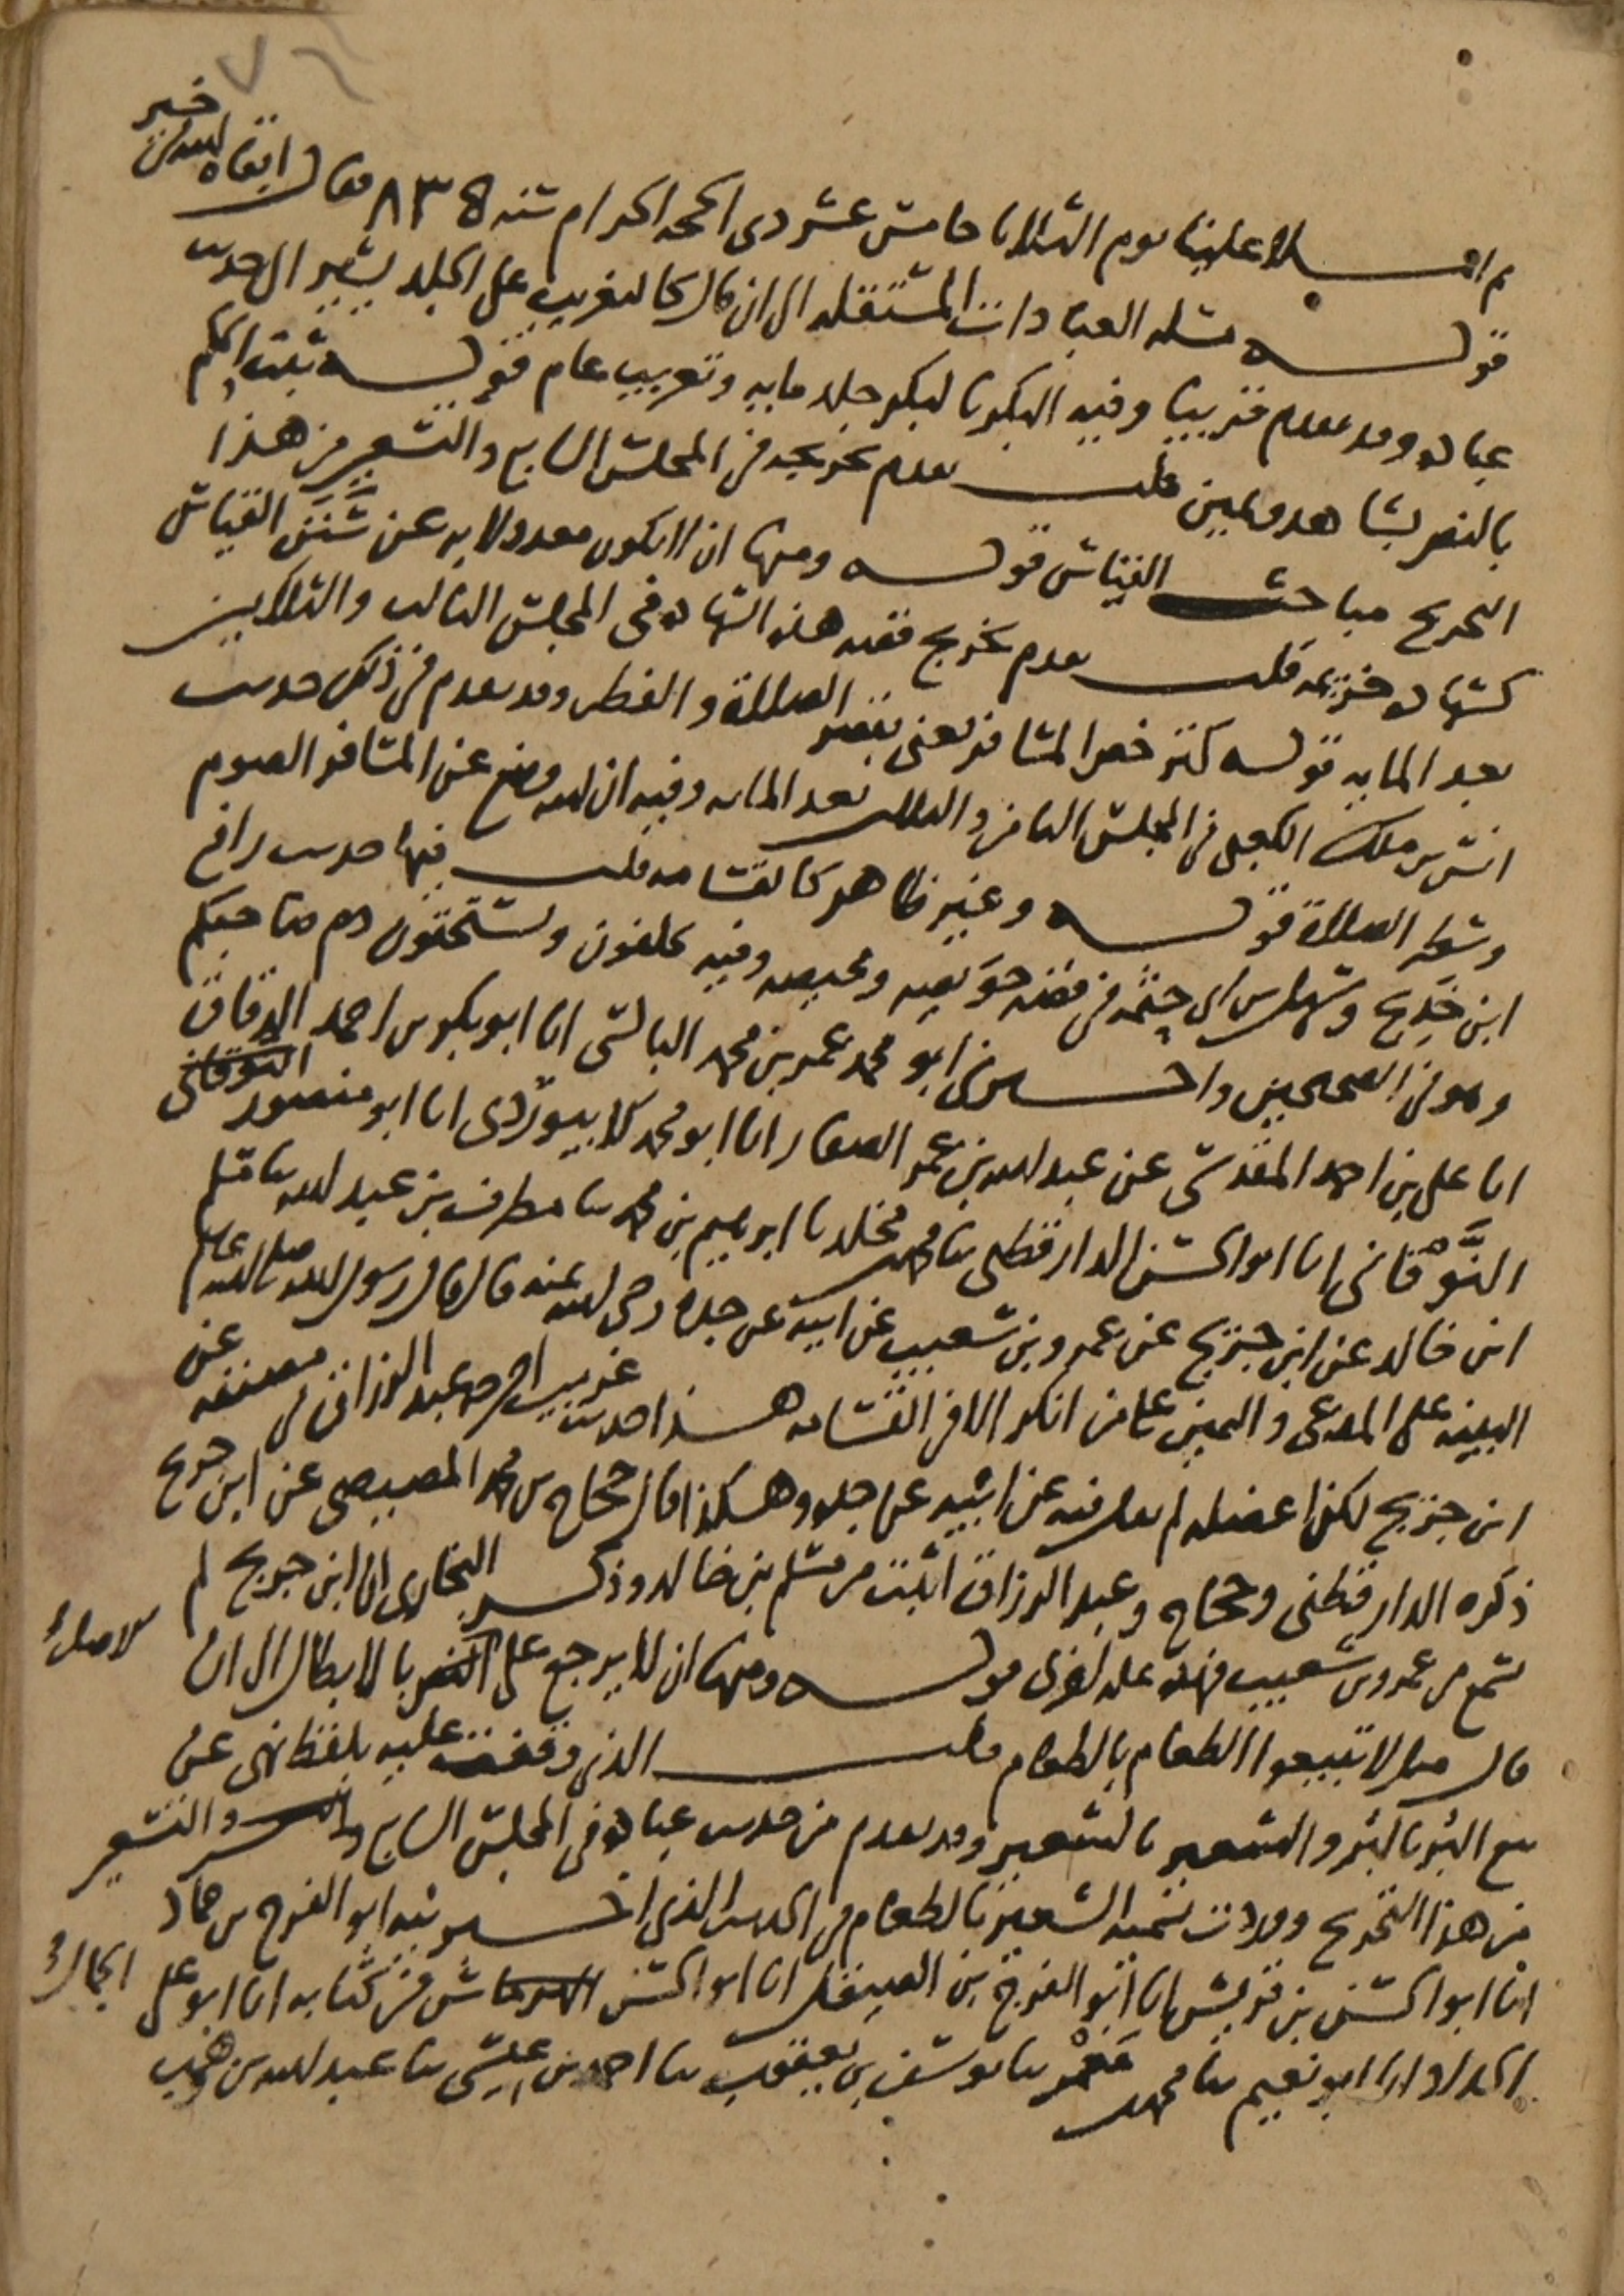 ثم املا علينا يوم الثلاثا خامس عشر ذى الحجة الحرام سنة ٨٣٥ فقال ابقاه الله فى خير
قوله مسلة العبادات المستقلة الى ان قال كالتغريب على الجلد يشير الى حديث
عبادة وقد تقدم قريبا وفيه البكر بالبكر جلد مايه وتغريب عام قوله ثبت الحكم
بالنص بشاهد ويمين قلت تقدم تخريجه فى المجلس السابع والتسعين من هذا
التخريج مباحث القياس قوله ومنها ان لا يكون معدولا به عن سنن القياس
كشهادة خزيمة قلت تقدم تخريج قصة هذه الشهادة فى المجلس الثالث والثلاثين
بعد المايه قوله كترخص المسافر يعنى بقصر الصلاة والفطر وقد تقدم فى ذلك حديث
انس بن ملك الكعبى فى المجلس الثامن والثلاثين بعد المايه وفيه ان الله وضع عن المسافر الصوم
وشطر الصلاة قوله وغير ظاهر كالقسامه قلت فيها حديث رافع
ابن خديج وسهل بن ابى حثمة فى قصة حويصه ومحيصه وفيه تحلفون وتستحقون دم صاحبكم
وهو فى الصحيحين واخبرنى ابو محمد عمر بن محمد البالسى انا ابو بكر بن احمد الدقاق
انا على بن احمد المقدسى عن عبد الله بن عمر الصفار انا ابو محمد الابيوردى انا ابو منصور النوقانى
النوقانى انا ابو الحسن الدارقطنى ثنا محمد بن مخلد ثنا ابراهيم بن محمد ثنا مطرف بن عبد الله ثنا مسلم
ابن خالد عن ابن جريج عن عمرو بن شعيب عن ابيه عن جده رضى الله عنه قال قال رسول الله صلى الله عليه وسلم
البينه على المدعى واليمين على من انكر الا فى القسامه هذا حديث غريب اخرجه عبد الرزاق فى مصنفه عن
ابن جريج لكن اعضله لم يقل فيه عن ابيه عن جده وهكذا قال حجاج بن محمد المصيصى عن ابن جريج
ذكره الدارقطنى وحجاج وعبد الرزاق اثبت من مسلم بن خالد وذكر البخارى ان ابن جريج لم
يسمع من عمرو بن شعيب فهذه علة اخرى قوله ومنها ان لا يرجع على النص بالابطال الى ان لاصل
قال مثل لا تبيعوا الطعام بالطعام قلت الذى وقفت عليه بلفظ نهى عن
بيع البر بالبر والشعير بالشعير وقد تقدم من حديث عبادة فى المجلس السابع والتسعين
من هذا التخريج ووردت تسمية الشعير بالطعام فى الحديث الذى اخبرنيه ابو الفرج بن حماد
انا ابو الحسن بن قريش انا ابو الفرج بن الصيقل انا ابو الحسن الجمال فى كتابه انا ابو على
الحداد انا ابو نعيم ثنا محمد بن معمر ثنا يوسف بن يعقوب ثنا احمد بن عيسى ثنا عبد الله بن وهب